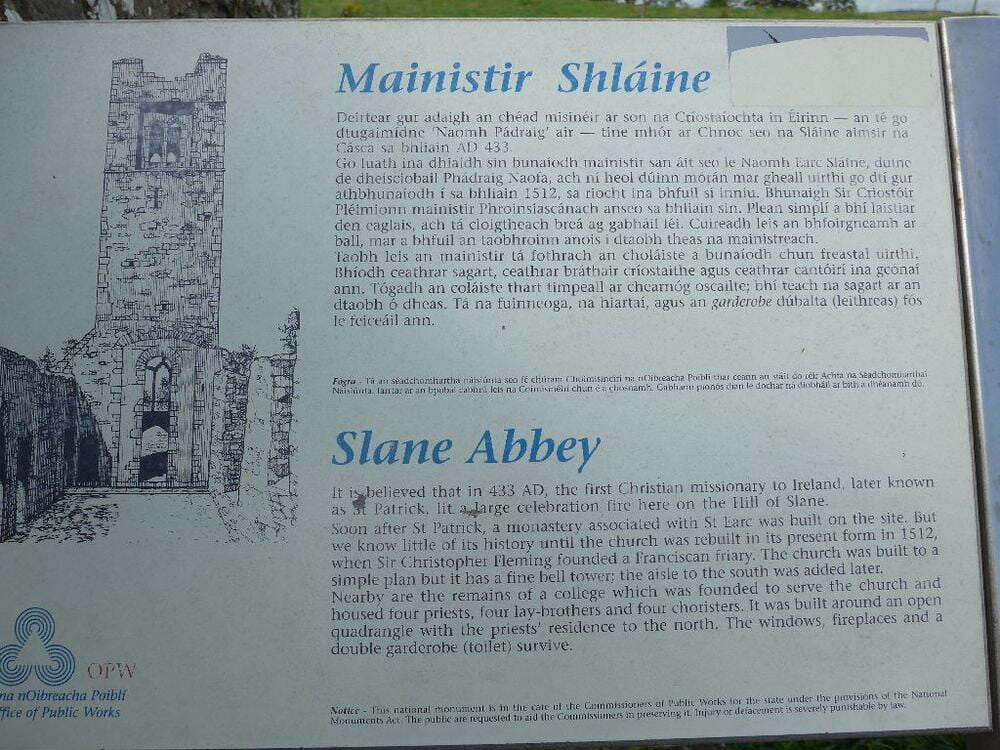 Mainistir Shláine
Deirtear gur adaigh an chéad misinéir ar son na Críostaíochta in Éirinn — an té go
dtugaimídne 'Naomh Pádraig' air — tine mhór ar Chnoc seo na Sláine aimsir na
Cásca sa bhliain AD 433.
Go luath ina dhiaidh sin bunaíodh mainistir san áit seo le Naomh Earc Sláine, duine
de dheisciobail Phádraig Naofa, ach ní heol dúinn mórán mar gheall uirthi go dtí gur
athbhunaíodh í sa bhliain 1512, sa riocht ina bhfuil sí inniu. Bhunaigh Sir Críostóir
Pléimionn mainistir Phroinsiascánach anseo sa bhliain sin. Plean simplí a bhí laistiar
den eaglais, ach tá cloigtheach breá ag gabháil léi. Cuireadh leis an bhfoirgneamh ar
ball, mar a bhfuil an taobhroinn anois i dtaobh theas na mainistreach.
Taobh leis an mainistir tá fothrach an choláiste a bunaíodh chun freastal uirthi.
Bhíodh ceathrar sagart, ceathrar bráthair críostaithe agus ceathrar cantóirí ina gcónaí
ann. Tógadh an coláiste thart timpeall ar chearnóg oscailte; bhí teach na sagart ar an
dtaobh ó dheas. Tá na fuinneoga, na hiartaí, agus an garderobe dúbalta (leithreas) fós
le feiceáil ann.
Fógra - Tá an séadchomhartha náisiúnta seo fé chúram Choimisinéirí na nOibreacha Poiblí thar ceann an stáit do réir Achta na Séadchomharthaí
Náisiúnta. Iarrtar ar an bpobal cabhrú leis na Coimisinéirí chun é a chosnamh. Gabhann pionós dian le dochar ná díobháil ar bith a dhéanamh dó.
Slane Abbey
It is believed that in 433 AD, the first Christian missionary to Ireland, later known
as St Patrick, lit a large celebration fire here on the Hill of Slane.
Soon after St Patrick, a monastery associated with St Earc was built on the site. But
we know little of its history until the church was rebuilt in its present form in 1512,
when Sir Christopher Fleming founded a Franciscan friary. The church was built to a
simple plan but it has a fine bell tower; the aisle to the south was added later.
Nearby are the remains of a college which was founded to serve the church and
housed four priests, four lay-brothers and four choristers. It was built around an open
quadrangle with the priests' residence to the north. The windows, fireplaces and a
double garderobe (toilet) survive.
OPW
na nOibreacha Poiblí
ffice of Public Works
Notice - This national monument is in the care of the Commissioners of Public Works for the state under the provisions of the National
Monuments Act. The public are requested to aid the Commissioners in preserving it. Injury or defacement is severely punishable by law.